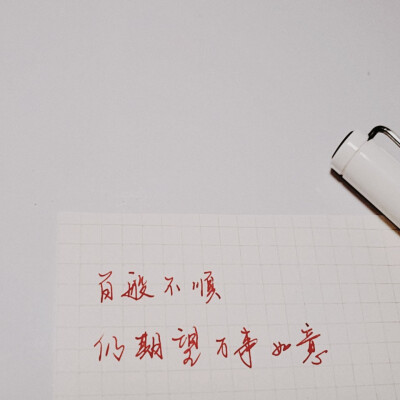 百般不顺
仍期望万事如意